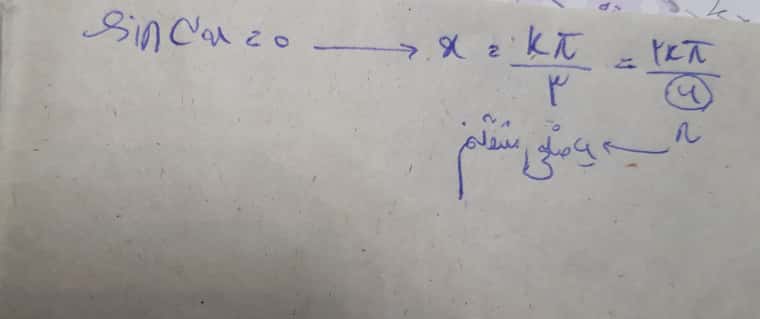 Sin ۳x = 0 → x = kπ/۳ = ۲kπ/۶
n → ۶ ضلعی منتظم